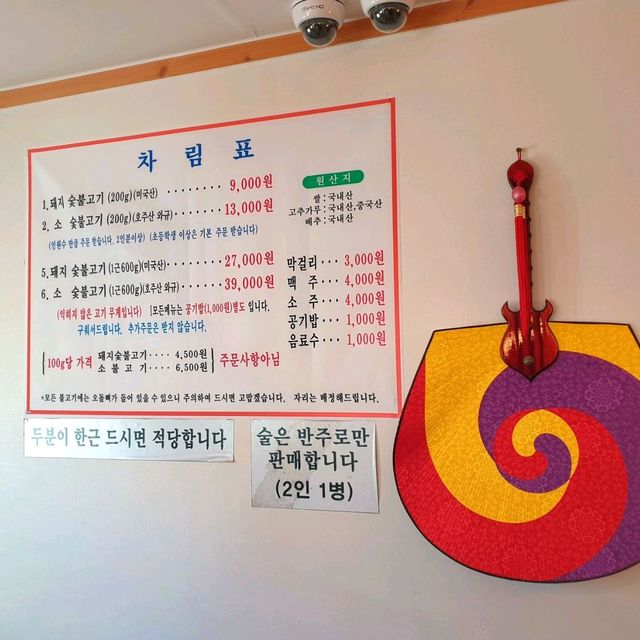 차 림 표
1.돼지 숯불고기 (200g)(미국산) ········· 9,000원
2. 소 숯불고기 (200g)(호주산 와규)········ 13,000원
(인원수 만큼 주문 받습니다. 2인분이상) (초등학생 이상은 기본 주문 받습니다)
5.돼지 숯불고기 (1근600g)(미국산)········· 27,000원
6. 소 숯불고기 (1근600g)(호주산 와규)······· 39,000원
(익히지 않은 고기 무게입니다) [모든메뉴는 공기밥(1,000원)별도 입니다.
구워서드립니다. 추가주문은 받지 않습니다.
100g당 가격
돼지숯불고기···· 4,500원
소 불 고 기···· 6,500원
주문사항아님
원 산 지
쌀 : 국내산
고추가루 : 국내산,중국산
배추 : 국내산
막걸리··· 3,000원
맥 주··· 4,000원
소 주··· 4,000원
공기밥··· 1,000원
음료수··· 1,000원
*모든 불고기에는 오돌뼈가 들어 있을 수 있으니 주의하여 드시면 고맙겠습니다. 자리는 배정해드립니다.
두분이 한근 드시면 적당합니다
술은 반주로만
판매합니다
(2인 1병)